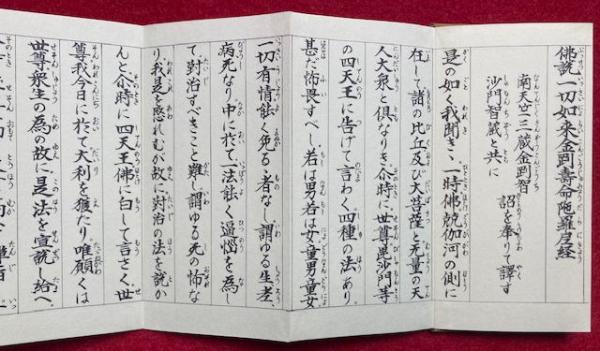 佛説一切如来金剛壽命陀羅尼経
南天竺三蔵金剛智
沙門智蔵と共に
詔を奉りて譯す
是の如く我聞き、一時佛兢伽河の側に
在して諸の比丘及び大菩薩と无量の天
人大衆と倶なりき、尒時に世尊毘沙門等
の四天王に告げて言わく四種の法あり
甚だ怖畏すべし、若は男若は女、童男童女
一切有情能く免る、者なし、謂ゆる生老
病死なり中に於て一法能く逼悩を為し
て、對治すべきこと難し謂ゆる死の怖な
り我是を愍れむが故に對治の法を説か
んと尒時に四天王佛に白して言さく、世
尊我今日に於て大利を獲たり唯願くは
世尊衆生の為の故に、是法を宣説し給へ